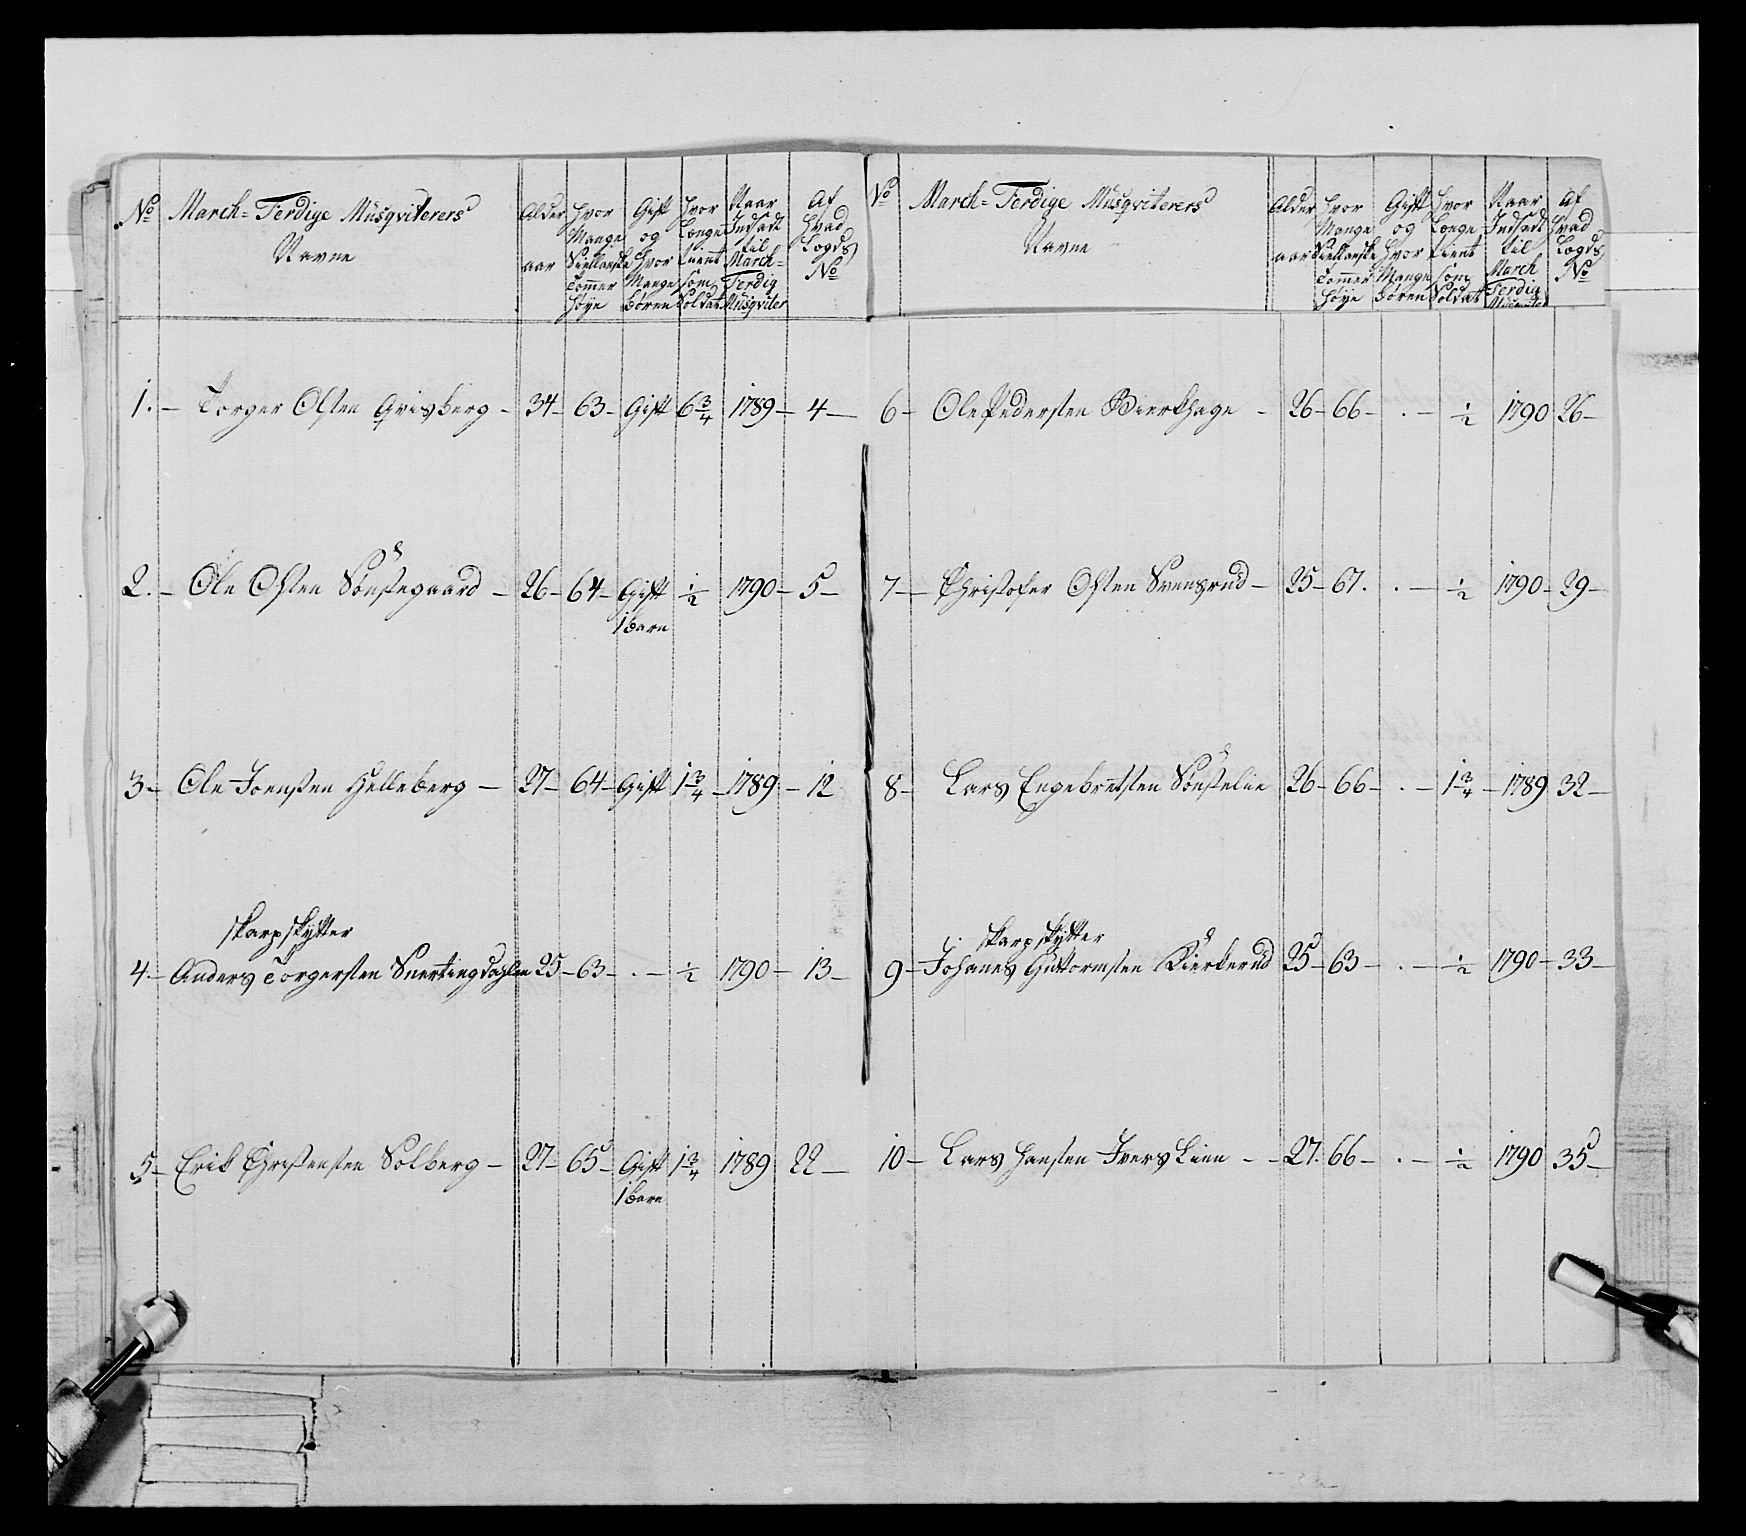 No March=Ferdige Musqviterers Navne | Alder aar | Hvor Mange Siellanske Tommer Høye | Gift og Hvor Mange Børen | Hvor Længe tient som Soldat | Naar Indsadt til March=Ferdig Musqviter | Af Hvad Lægds No
1. – Torger Olsen Qvisberg – 34 – 63 – Gift 6 3/4 1789 – 4 –
2. – Ole Olsen Sønstegaard – 26 – 64 – Gift 1/2 1790 – 5 –
1 Barn
3 – Ole Joensen Helleberg – 27 – 64 – Gift 1 3/4 – 1789 – 12
skarpskytter
4 – Anders Torgersen Snertingdahlen 25 – 63 – . – 1/2 1790 – 13 –
5 – Erik Christensen Solberg – 27 – 65 – Gift 1 3/4 1789 22 –
1 Barn
No March=Ferdige Musqviterers Navne | Alder aar | Hvor Mange Siellanske Tommer Høye | Gift og Hvor Mange Børen | Hvor Længe tient som Soldat | Naar Indsadt til March Ferdig Musqviter | Af Hvad Lægds No
6 – Ole Pedersen Bierkhage – 26 – 66 – . – 1/2 1790 26 –
7 – Christofer Olsen Svensrud – 25 – 67 . . – 1/2 1790 – 29 –
8 – Lars Engebretsen Sønstelie 26 – 66 – . – 1 3/4 – 1789 32 –
skarpskytter
9 – Johanes Guttormsen Bierkerud 25 – 63 – . – 1/2 1790 – 33 –
10 – Lars Hansen Ivers Lien – – 27. 66 – . – 1/2 1790 35 –